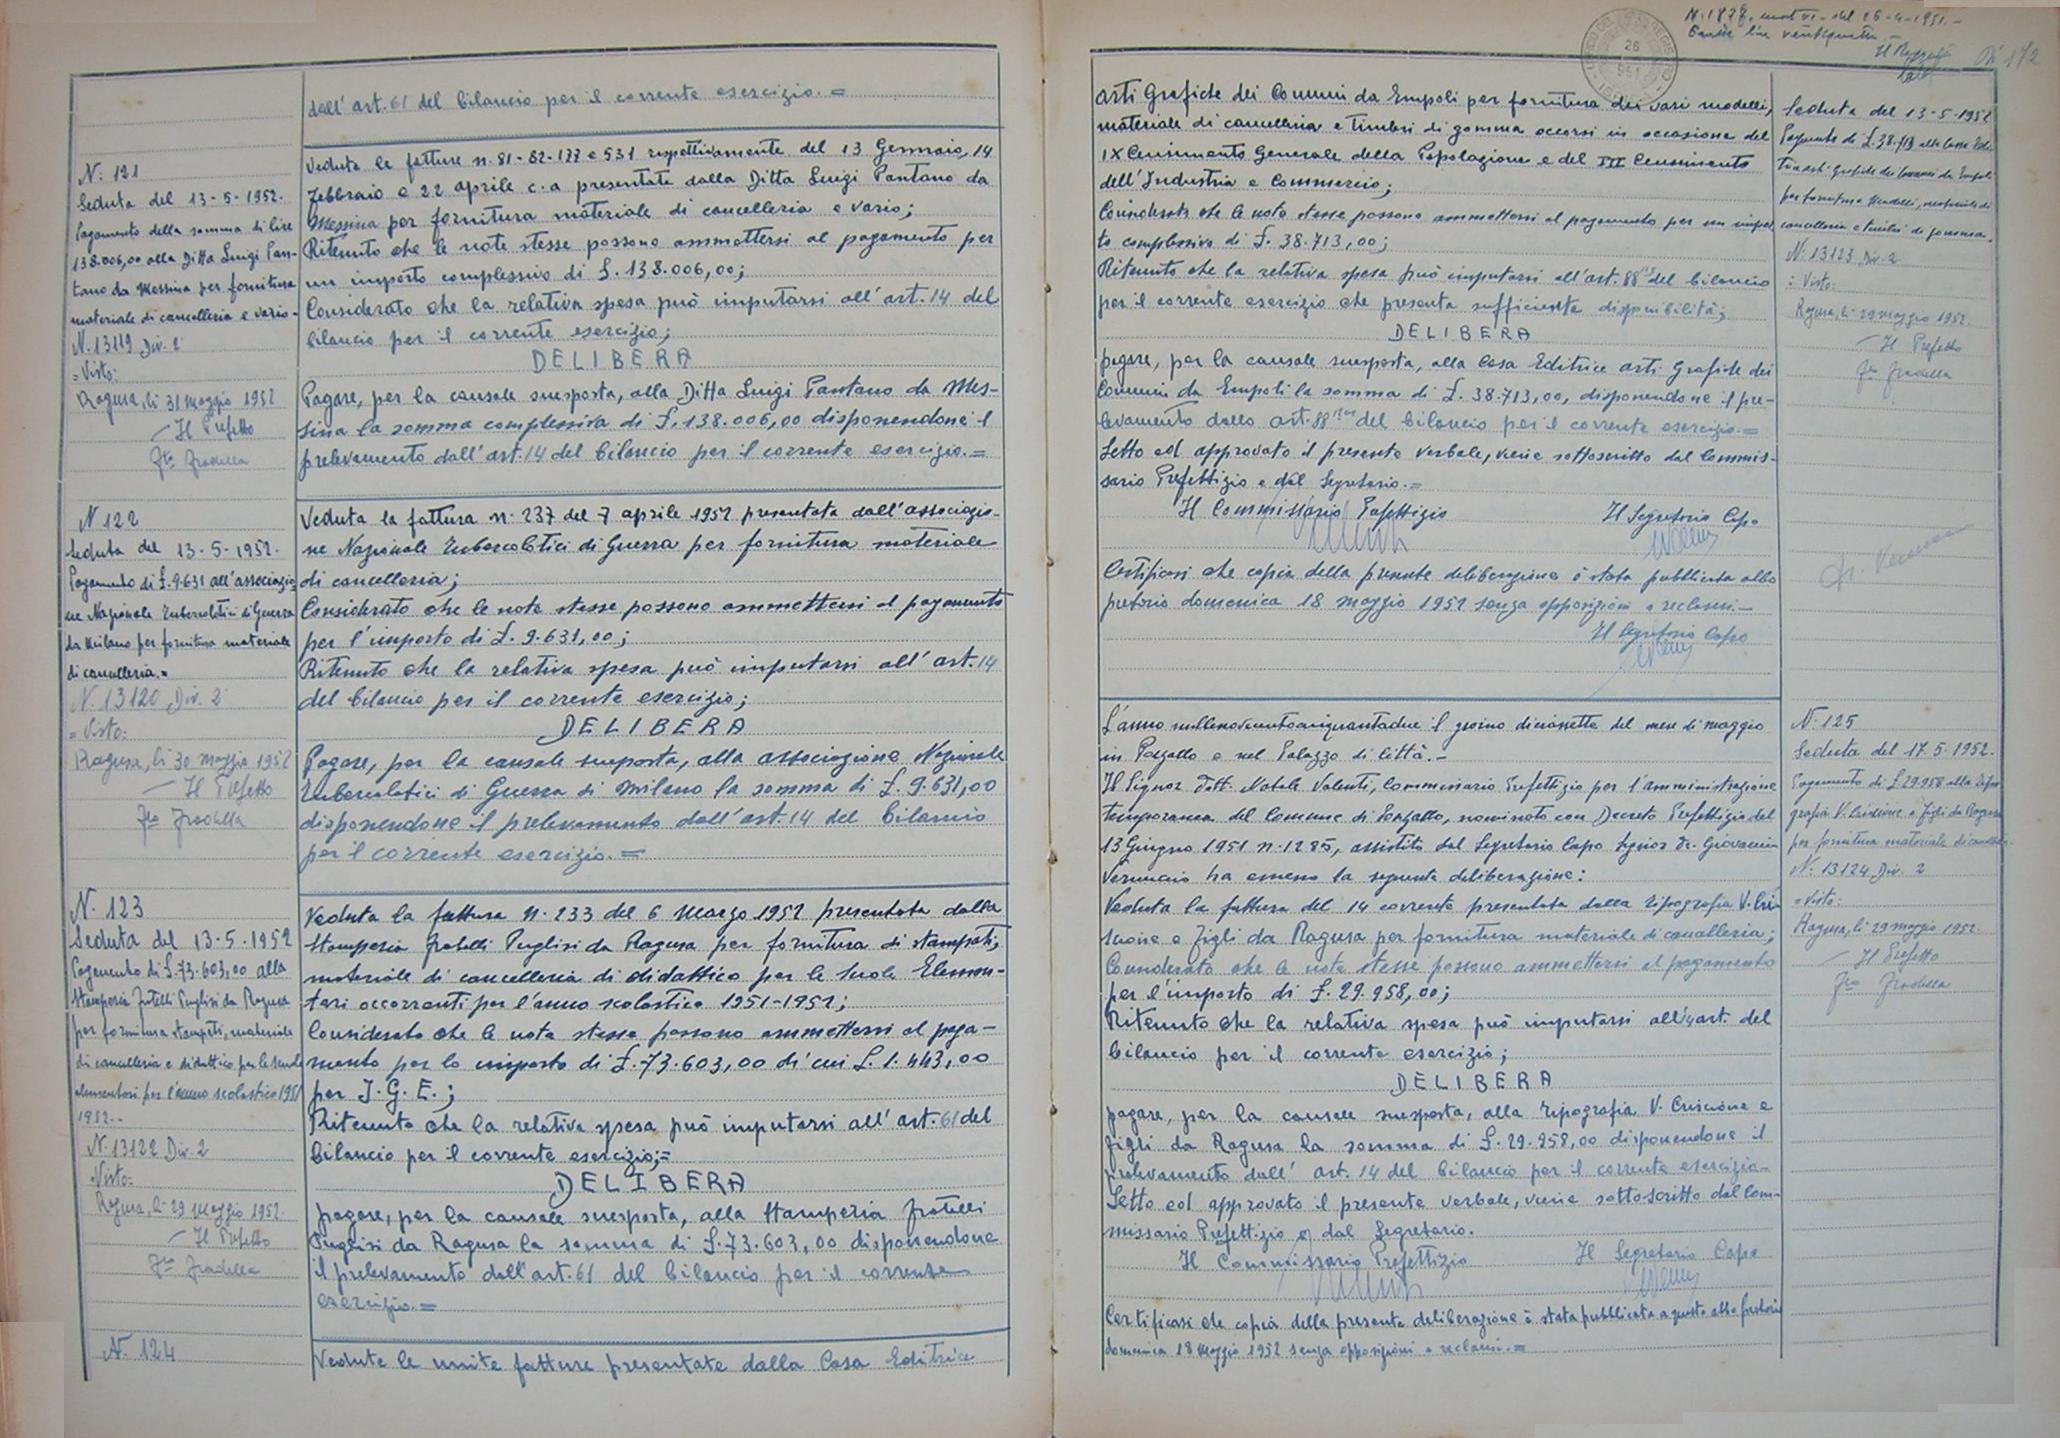 dell'art. 61 del bilancio per il corrente esercizio. =
N. 121
Seduta del 13-5-1952.
Pagamento della somma di lire
138.006,00 alla Ditta Luigi Pan-
tano da Messina per fornitura
materiale di cancelleria e vario-
N. 13119 Div. 2
= Visto:
Ragusa, li 31 maggio 1952
Il Prefetto
Fto Fradella
Vedute le fatture n. 81-82-177 e 531 rispettivamente del 13 Gennaio, 14
Febbraio e 22 aprile c.a presentate dalla Ditta Luigi Pantano da
Messina per fornitura materiale di cancelleria e vario;
Ritenuto che le note stesse possono ammettersi al pagamento per
un importo complessivo di £. 138.006,00;
Considerato che la relativa spesa può imputarsi all'art. 14 del
bilancio per il corrente esercizio;
DELIBERA
Pagare, per la causale suesposta, alla Ditta Luigi Pantano da Mes-
sina la somma complessiva di £. 138.006,00 disponendone il
prelevamento dall'art. 14 del bilancio per il corrente esercizio. =
N 122
Seduta del 13-5-1952.
Pagamento di £. 9.631 all'associazio-
ne Nazionale Tubercolotici di Guerra
da Milano per fornitura materiale
di cancelleria. =
N. 13120 Div. 2
= Visto:
Ragusa, li 30 maggio 1952
Il Prefetto
Fto Fradella
Veduta la fattura n. 237 del 7 aprile 1952 presentata dall'associazio-
ne Nazionale Tubercolotici di Guerra per fornitura materiale
di cancelleria;
Considerato che le note stesse possono ammettersi al pagamento
per l'importo di £. 9.631,00;
Ritenuto che la relativa spesa può imputarsi all'art. 14
del bilancio per il corrente esercizio;
DELIBERA
Pagare, per la causale suesposta, alla associazione Nazionale
Tubercolotici di Guerra di Milano la somma di £. 9.631,00
disponendone il prelevamento dall'art. 14 del bilancio
per il corrente esercizio. =
N. 123
Seduta del 13-5-1952
Pagamento di £. 73.603,00 alla
Stamperia Fratelli Puglisi da Ragusa
per fornitura stampati, materiale
di cancelleria e didattico per le Scuole
elementari per l'anno scolastico 1951
1952.-
N. 13122 Div. 2
Visto:
Ragusa, li 29 maggio 1952.
Il Prefetto
Fto Fradella
Veduta la fattura n. 233 del 6 Marzo 1952 presentata dalla
Stamperia Fratelli Puglisi da Ragusa per fornitura di stampati,
materiale di cancelleria di didattico per le Scuole Elemen-
tari occorrenti per l'anno scolastico 1951-1952;
Considerato che le note stesse possono ammettersi al paga-
mento per lo importo di £. 73.603,00 di cui £. 1.443,00
per I.G.E.;
Ritenuto che la relativa spesa può imputarsi all'art. 61 del
bilancio per il corrente esercizio; =
DELIBERA
pagare, per la causale suesposta, alla Stamperia Fratelli
Puglisi da Ragusa la somma di £. 73.603,00 disponendone
il prelevamento dall'art. 61 del bilancio per il corrente
esercizio. =
N. 124
Vedute le unite fatture presentate dalla Casa Editrice
N. 1878, mod VI - del 26-4-1951.-
26
951
172
arti Grafiche dei Comuni da Empoli per fornitura dei vari modelli,
materiale di cancelleria e timbri di gomma occorsi in occasione del
IX Censimento Generale della Popolazione e del III Censimento
dell'Industria e Commercio;
Considerato che le note stesse possono ammettersi al pagamento per un impor-
to complessivo di £. 38.713,00;
Ritenuto che la relativa spesa può imputarsi all'art. 88 bis del bilancio
per il corrente esercizio che presenta sufficiente disponibilità;
DELIBERA
pagare, per la causale suesposta, alla Casa Editrice arti Grafiche dei
Comuni da Empoli la somma di £. 38.713,00, disponendone il pre-
levamento dallo art. 88 del bilancio per il corrente esercizio. =
Letto ed approvato il presente verbale, viene sottoscritto dal Commis-
sario Prefettizio e dal Segretario. =
Il Commissario Prefettizio Il Segretario Capo
Certificasi che copia della presente deliberazione è stata pubblicata allo
pretorio domenica 18 maggio 1952 senza opposizioni e reclami.-
Il Segretario Capo
Seduta del 13-5-1952
Pagamento di £. 38.713 alla Casa Edi-
trice arti grafiche dei Comuni da Empoli
per fornitura Modelli, materiale di
cancelleria e timbri di gomma.
N. 13123 Div. 2
: Visto:
Ragusa, li 29 maggio 1952.
Il Prefetto
Fto Fradella
L'anno millenovecentocinquantadue il giorno diciassette del mese di maggio
in Pozzallo e nel Palazzo di Città.-
Il Signor Dott. Natale Valenti, Commissario Prefettizio per l'amministrazione
temporanea del Comune di Pozzallo, nominato con Decreto Prefettizio del
13 Giugno 1951 n. 1285, assistito dal Segretario Capo Signor Dr. Giovanni
Vernuccio ha emesso la seguente deliberazione:
Veduta la fattura del 14 corrente presentata dalla Tipografia V. Cri-
scione e Figli da Ragusa per fornitura materiale di cancelleria;
Considerato che le note stesse possono ammettersi al pagamento
per l'importo di £. 29.958,00;
Ritenuto che la relativa spesa può imputarsi all'art. del
bilancio per il corrente esercizio;
DELIBERA
pagare, per la causale suesposta, alla Tipografia V. Criscione e
figli da Ragusa la somma di £. 29.958,00 disponendone il
prelevamento dall'art. 14 del bilancio per il corrente esercizio-
Letto ed approvato il presente verbale, viene sottoscritto dal Com-
missario Prefettizio e dal Segretario.
Il Commissario Prefettizio Il Segretario Capo
Certificasi che copia della presente deliberazione è stata pubblicata a questo albo pretorio
domenica 18 Maggio 1952 senza opposizioni e reclami. =
N. 125
Seduta del 17.5.1952.
Pagamento di £ 29.958 alla Tipo-
grafia V. Criscione e figli da Ragusa
per fornitura materiale di cancelleria
N. 13124 Div. 2
= Visto:
Ragusa, li 29 maggio 1952.
Il Prefetto
Fto Fradella